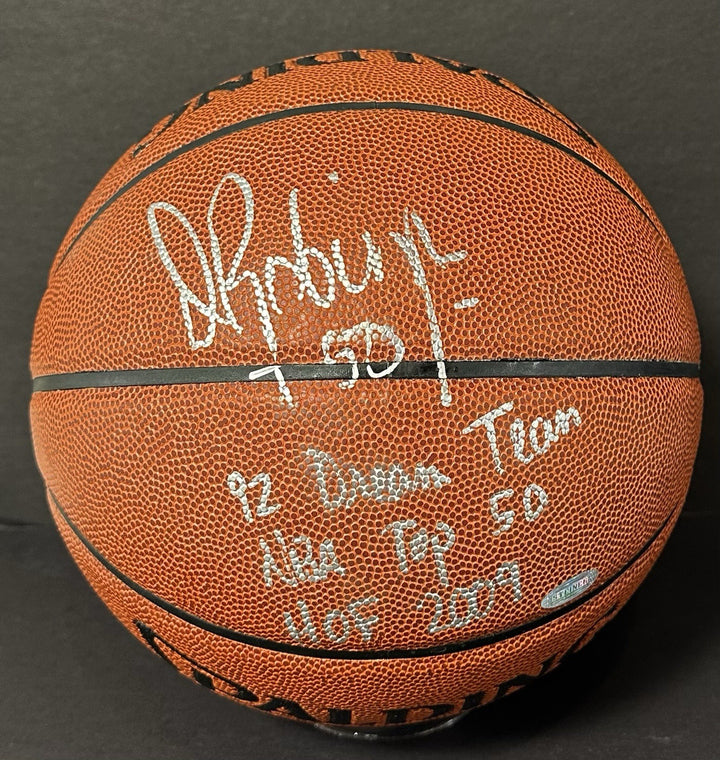 SPALDING
D Robinson
50
92 Dream Team
NBA Top 50
HOF 2009
STEINER
SPALDING